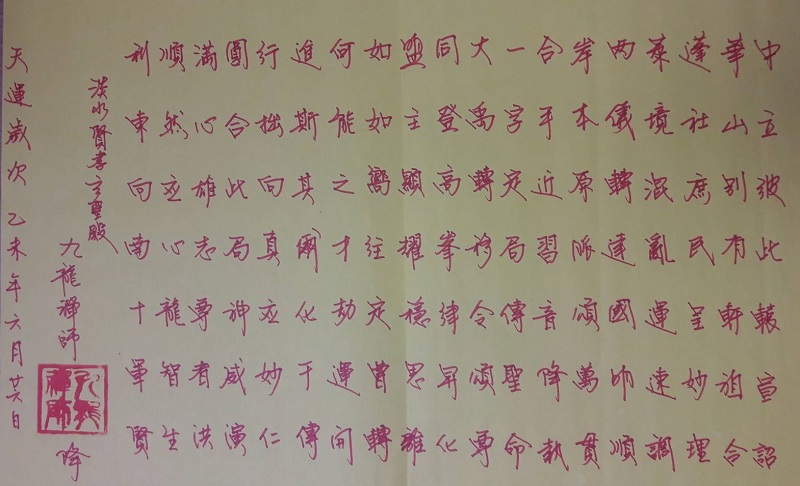 中立彼此轅宣詔
華山別有軒合
蓬社庶民呈妙理
萊境混亂運速調
兩儀轉達國帥順
岸本原派頌萬貫
合平近習音降執
一字定局傳聖命
大禹轉移令頌專
同登高峯律昇化
盟主顯耀穩思
如如嚮往定曾轉
何能之才劫運開
進斯其化于傳
行拙向真应妙仁
圓合此局神威演
滿心雄志尊者洪
順然应心龍智生
利東向南十軍賢
淡水賢孝玄聖殿
九龍禪師 降
九龍禪師
天運歲次乙未年六月廿六日